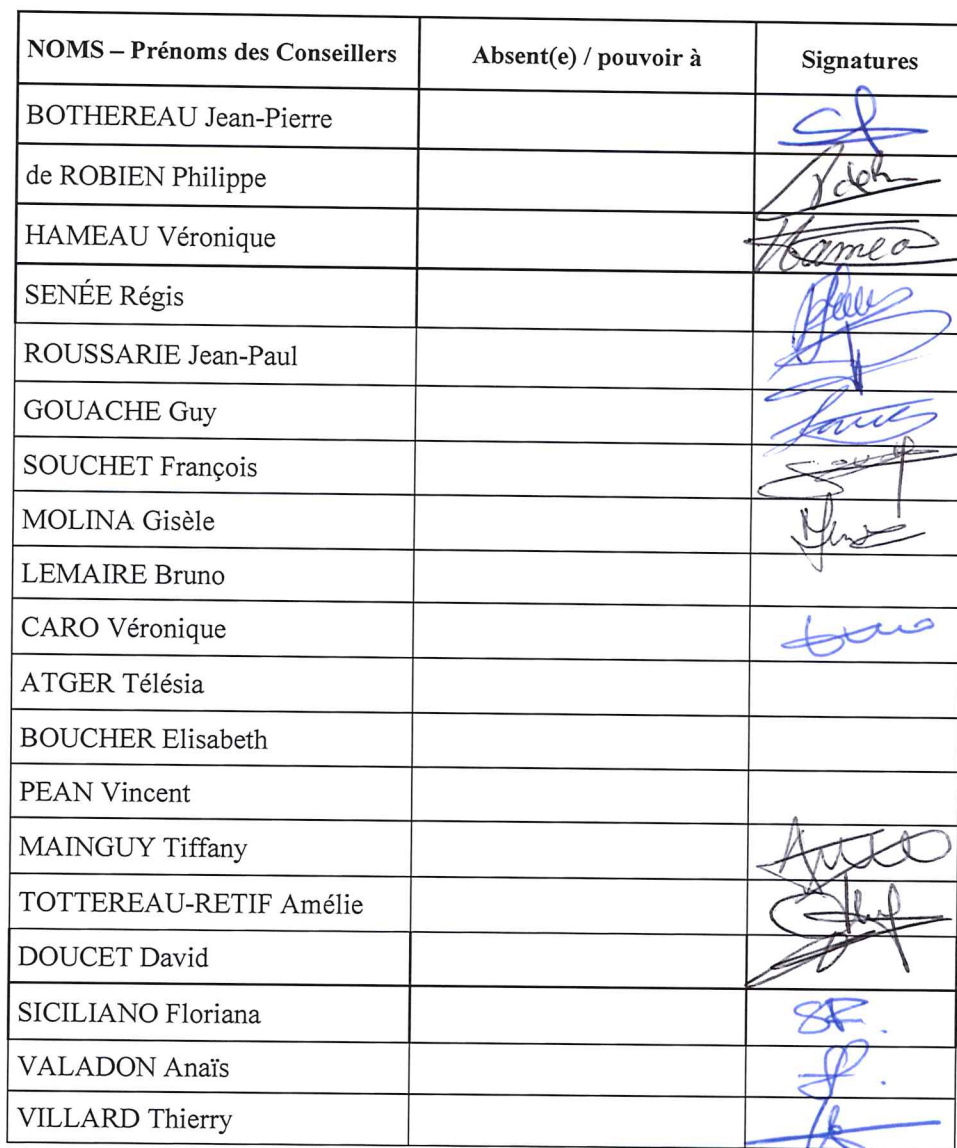 NOMS – Prénoms des Conseillers Absent(e) / pouvoir à Signatures
BOTHEREAU Jean-Pierre
de ROBIEN Philippe
HAMEAU Véronique Hameo
SENÉE Régis
ROUSSARIE Jean-Paul
GOUACHE Guy
SOUCHET François
MOLINA Gisèle
LEMAIRE Bruno
CARO Véronique
ATGER Télésia
BOUCHER Elisabeth
PEAN Vincent
MAINGUY Tiffany
TOTTEREAU-RETIF Amélie
DOUCET David
SICILIANO Floriana SF.
VALADON Anaïs
VILLARD Thierry